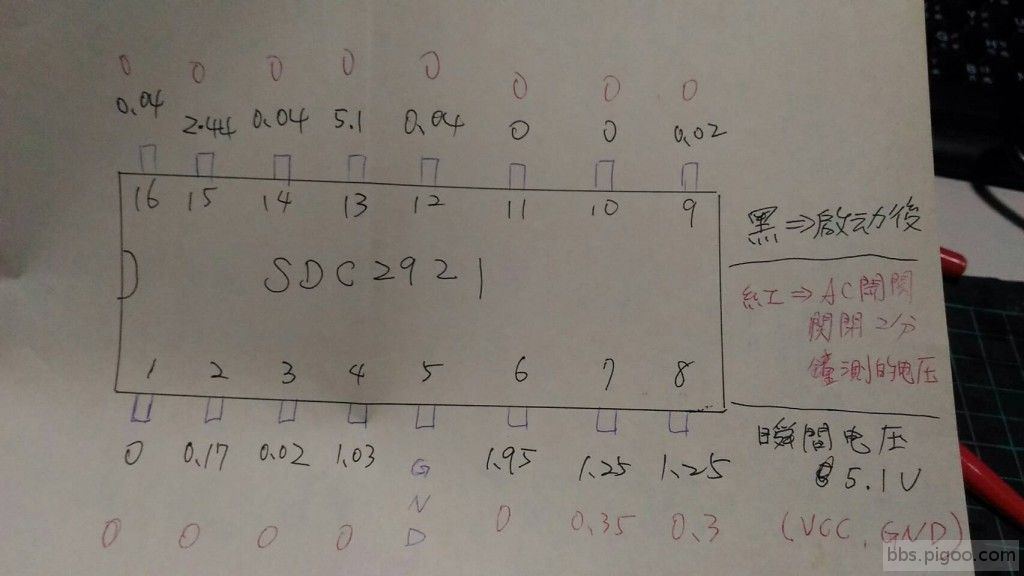 0 0 0 0 0 0 0 0
0.04 2.44 0.04 5.1 0.04 0 0 0.02
16 15 14 13 12 11 10 9
SDC2921
1 2 3 4 5 6 7 8
0 0.17 0.02 1.03 GND 1.95 1.25 1.25
0 0 0 0 0 0.35 0.3
黑⇒啟动後
紅⇒AC開関
関閉2分
鐘測的电压
瞬間电压
5.1V
(VCC, GND)
bbs.pigoo.com